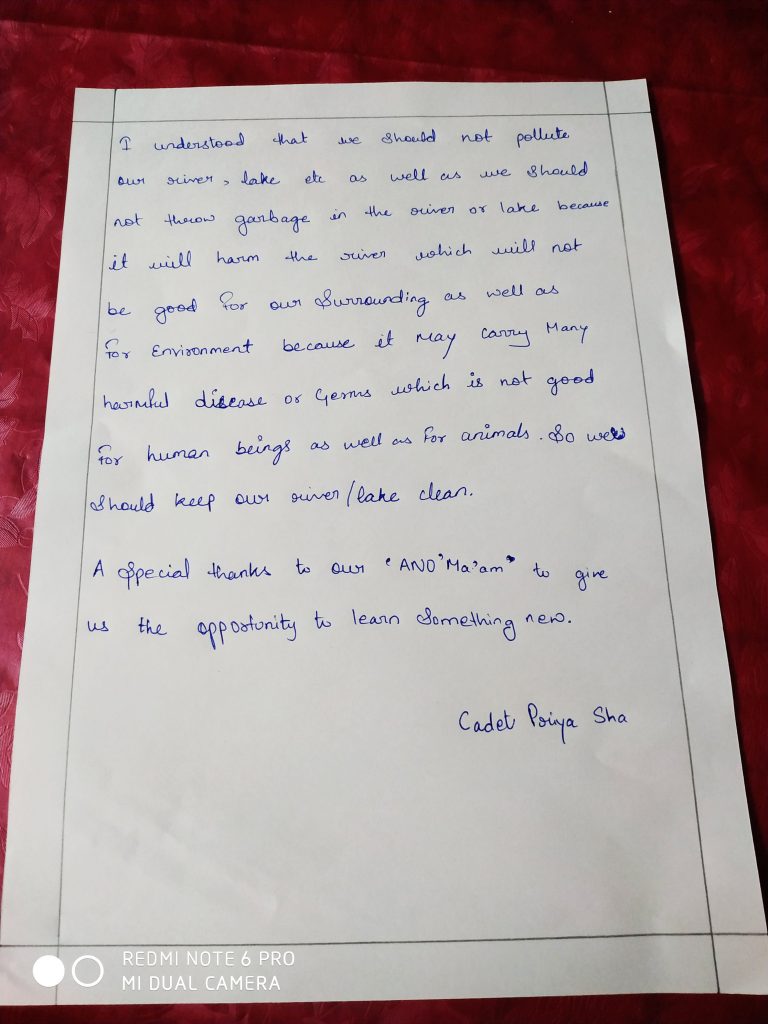 I understood that we should not pollute
our river, lake etc as well as we should
not throw garbage in the river or lake because
it will harm the river which will not
be good for our Surrounding as well as
for Environment because it may carry Many
harmful disease or Germs which is not good
for human beings as well as for animals. So we
should keep our river/lake clean.
A Special thanks to our 'ANO' Ma'am' to give
us the opportunity to learn Something new.
Cadet Priya Sha
REDMI NOTE 6 PRO
MI DUAL CAMERA